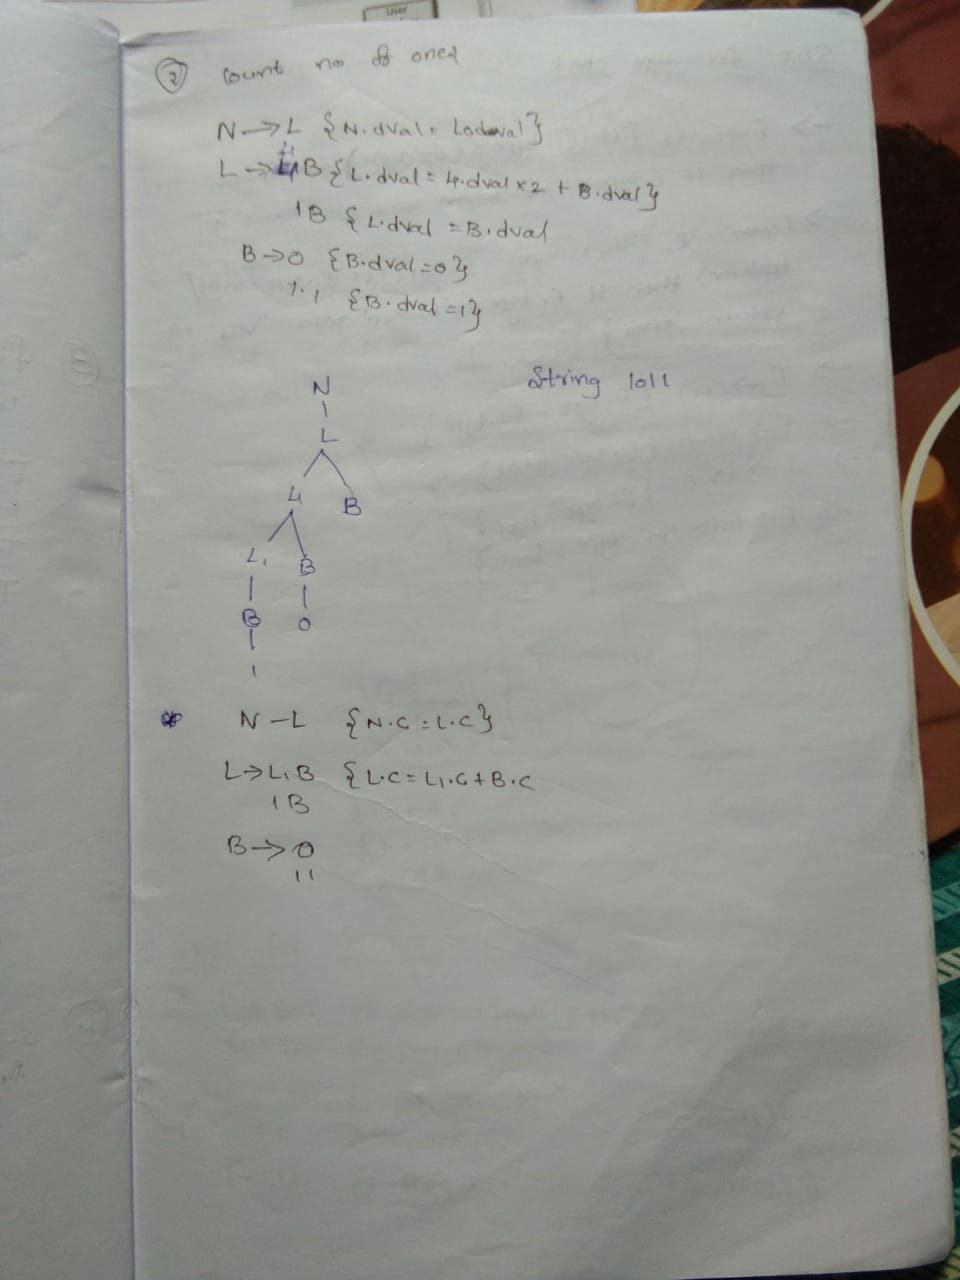 User
2 Count no of ones
N → L { N.dval = L.dval }
L → L1 B { L.dval = L1.dval x 2 + B.dval }
| B { L.dval = B.dval
B → 0 { B.dval = 0 }
1 { B.dval = 1 }
String 1011
N
L
L1 B
L1 B
B 0
1
N - L { N.C = L.C }
L → L1 B { L.C = L1.C + B.C
| B
B → 0
| 1